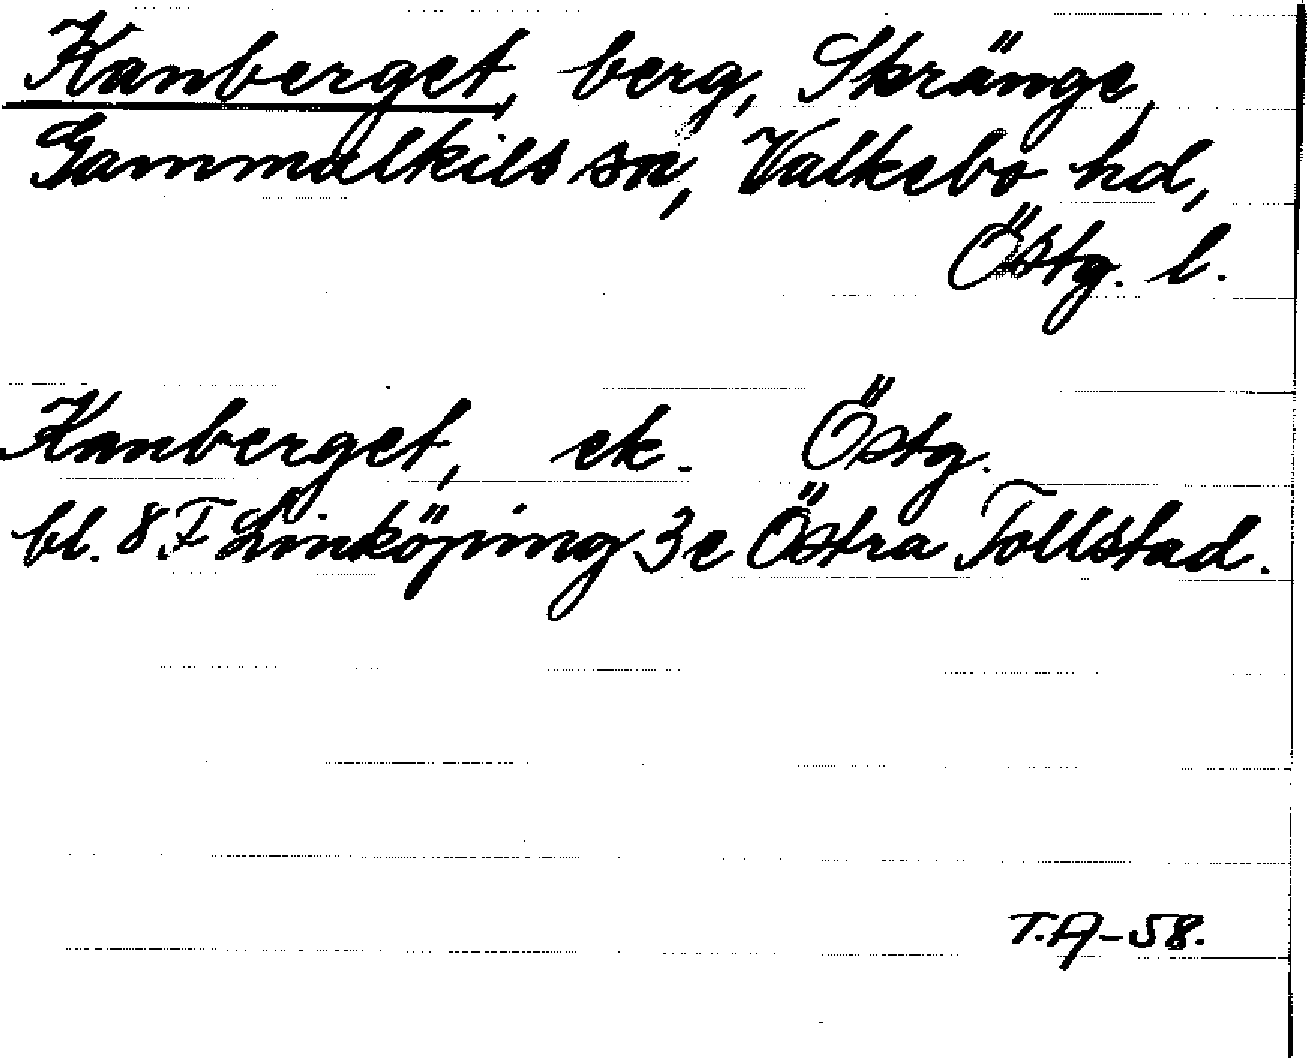 Kanberget, berg, Skränge,
Gammalkils sn, Valkebo hd,
Östg. l.
Kanberget, ek. Östg.
bl. 8 F Linköping 3 e Östra Tollstad.
T.A-58.